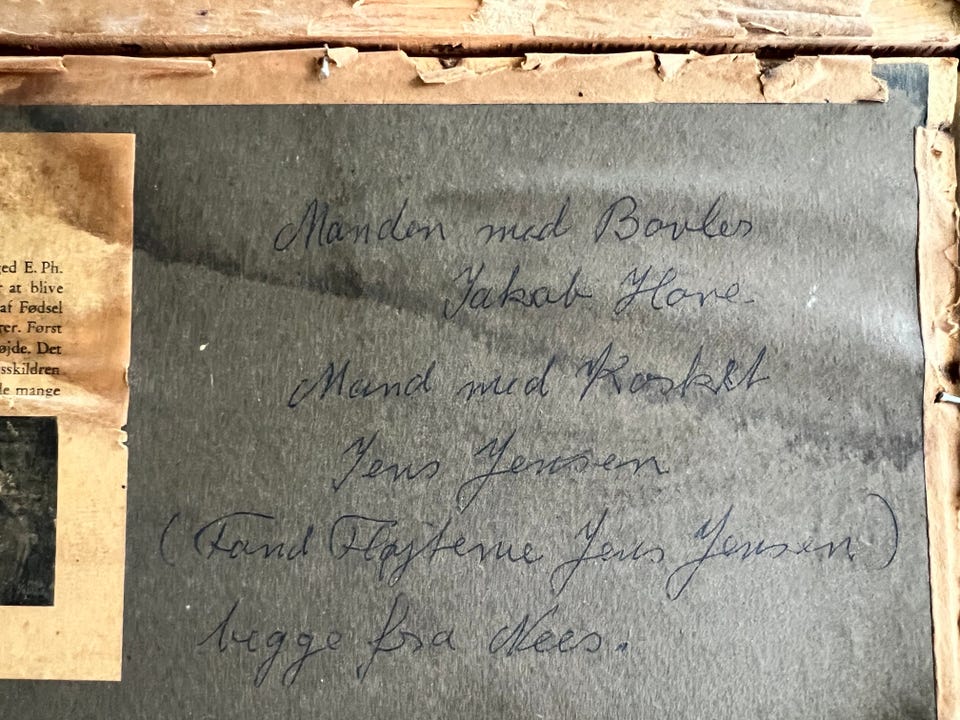 ed E. Ph.
r at blive
af Fødsel
rer. Først
øjde. Det
sskildren
de mange
Manden med Bovler
Jakob Hove.
Mand med Kasket
Jens Jensen
(Fand Fløjterne Jens Jensen)
begge fra Nees.